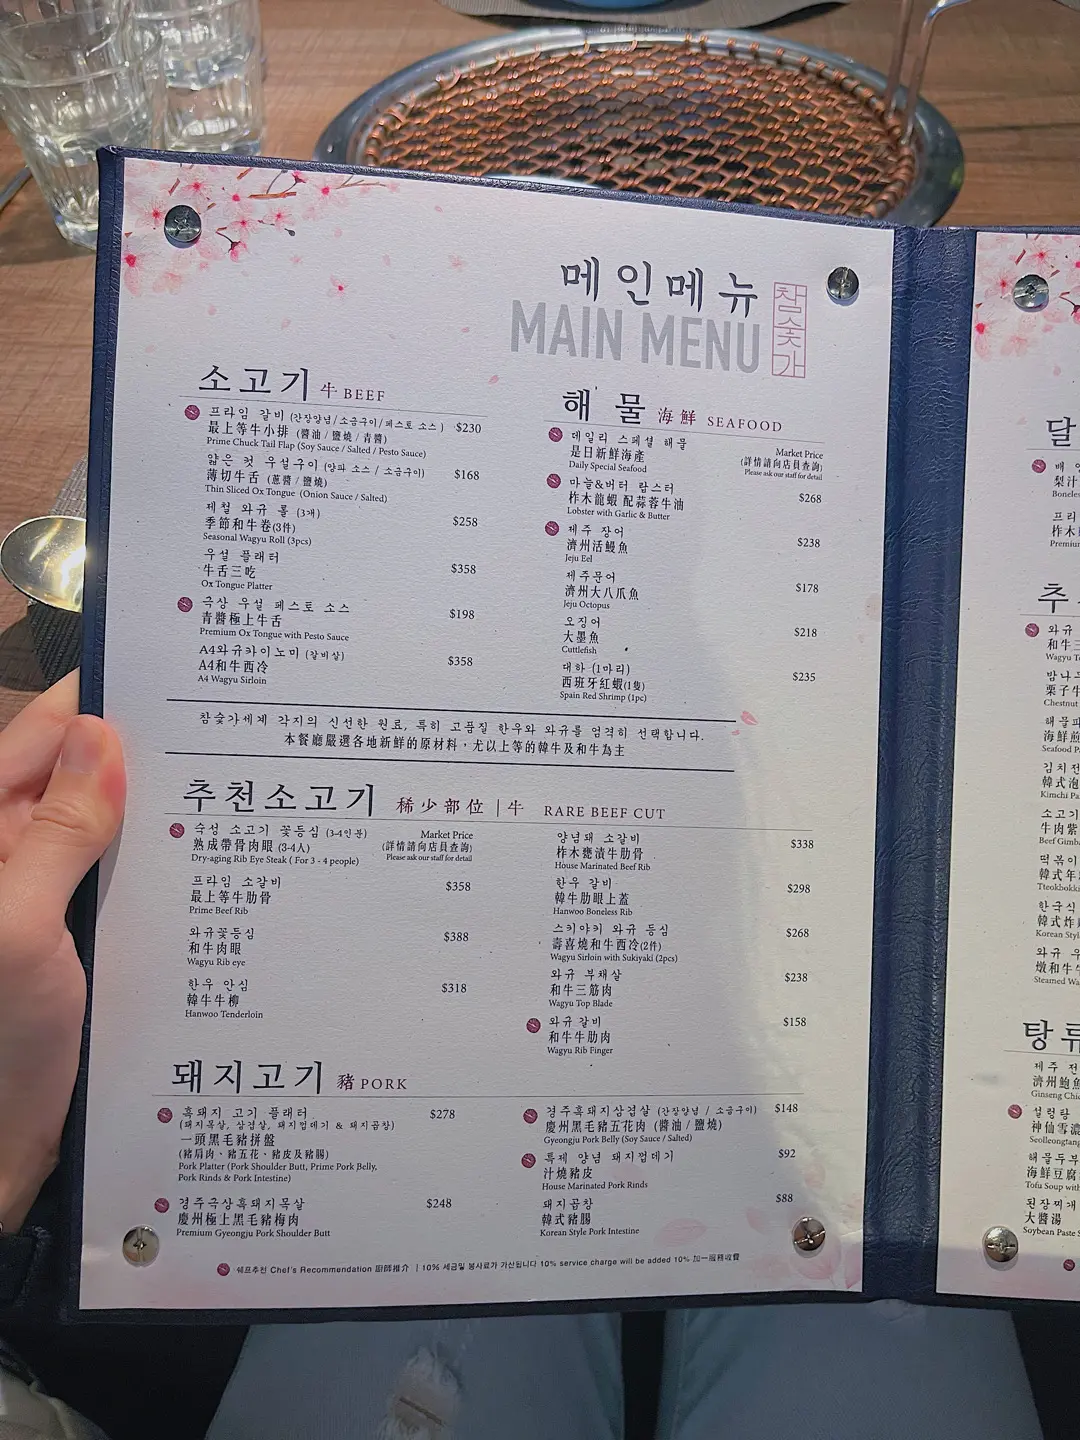 메인메뉴
MAIN MENU
참숯가
소고기 牛 BEEF
프라임 갈비 (간장양념/소금구이/페스토 소스) $230
最上等牛小排 (醬油 / 鹽燒 / 青醬)
Prime Chuck Tail Flap (Soy Sauce / Salted / Pesto Sauce)
얇은 컷 우설구이 (양파 소스 / 소금구이) $168
薄切牛舌 (蔥醬 / 鹽燒)
Thin Sliced Ox Tongue (Onion Sauce / Salted)
제철 와규 롤 (3개)
季節和牛卷(3件) $258
Seasonal Wagyu Roll (3pcs)
우설 플래터
牛舌三吃 $358
Ox Tongue Platter
극상 우설 페스토 소스
青醬極上牛舌 $198
Premium Ox Tongue with Pesto Sauce
A4와규카이노미 (갈비살)
A4和牛西冷 $358
A4 Wagyu Sirloin
해 물 海鮮 SEAFOOD
데일리 스페셜 해물
是日新鮮海產
Daily Special Seafood
Market Price
(詳情請向店員查詢)
Please ask our staff for detail
마늘&버터 랍스터
柞木龍蝦 配蒜蓉牛油 $268
Lobster with Garlic & Butter
제주 장어
濟州活鰻魚 $238
Jeju Eel
제주문어
濟州大八爪魚 $178
Jeju Octopus
오징어
大墨魚 $218
Cuttlefish
대하 (1마리)
西班牙紅蝦(1隻) $235
Spain Red Shrimp (1pc)
참숯가세계 각지의 신선한 원료, 특히 고품질 한우와 와규를 엄격히 선택합니다.
本餐廳嚴選各地新鮮的原材料，尤以上等的韓牛及和牛為主
추천소고기 稀少部位 | 牛 RARE BEEF CUT
숙성 소고기 꽃등심 (3-4인분)
熟成帶骨肉眼 (3-4人)
Dry-aging Rib Eye Steak ( For 3 - 4 people)
Market Price
(詳情請向店員查詢)
Please ask our staff for detail
프라임 소갈비
最上等牛肋骨 $358
Prime Beef Rib
와규꽃등심
和牛肉眼 $388
Wagyu Rib eye
한우 안심
韓牛牛柳 $318
Hanwoo Tenderloin
양념돼 소갈비
柞木甕漬牛肋骨 $338
House Marinated Beef Rib
한우 갈비
韓牛肋眼上蓋 $298
Hanwoo Boneless Rib
스키야키 와규 등심
壽喜燒和牛西冷(2件) $268
Wagyu Sirloin with Sukiyaki (2pcs)
와규 부채살
和牛三筋肉 $238
Wagyu Top Blade
와규 갈비
和牛牛肋肉 $158
Wagyu Rib Finger
돼지고기 豬 PORK
흑돼지 고기 플래터 $278
(돼지목살, 삼겹살, 돼지껍데기 & 돼지곱창)
一頭黑毛豬拼盤
(豬肩肉、豬五花、豬皮及豬腸)
Pork Platter (Pork Shoulder Butt, Prime Pork Belly,
Pork Rinds & Pork Intestine)
경주극상흑돼지목살 $248
慶州極上黑毛豬梅肉
Premium Gyeongju Pork Shoulder Butt
경주흑돼지삼겹살 (간장양념 / 소금구이) $148
慶州黑毛豬五花肉 (醬油 / 鹽燒)
Gyeongju Pork Belly (Soy Sauce / Salted)
특제 양념 돼지껍데기 $92
汁燒豬皮
House Marinated Pork Rinds
돼지곱창 $88
韓式豬腸
Korean Style Pork Intestine
쉐프추천 Chef's Recommendation 廚師推介 | 10% 세금및 봉사료가 가산됩니다 10% service charge will be added 10% 加一服務收費
달
배
梨汁
Bonele
프리
柞木
Premium
추
와규
和牛三
Wagyu T
밤나
栗子牛
Chestnut
해물파
海鮮煎
Seafood P
김치전
韓式泡
Kimchi Pa
소고기
牛肉紫
Beef Gimba
떡볶이
韓式年
Tteokbokki
한국식
韓式炸
Korean Style
와규 우
燉和牛
Steamed Wa
탕류
제주 전
濟州鮑魚
Ginseng Chic
설렁탕
神仙雪濃
Seolleongtang
해물두부
海鮮豆腐
Tofu Soup with
된장찌개
大醬湯
Soybean Paste S